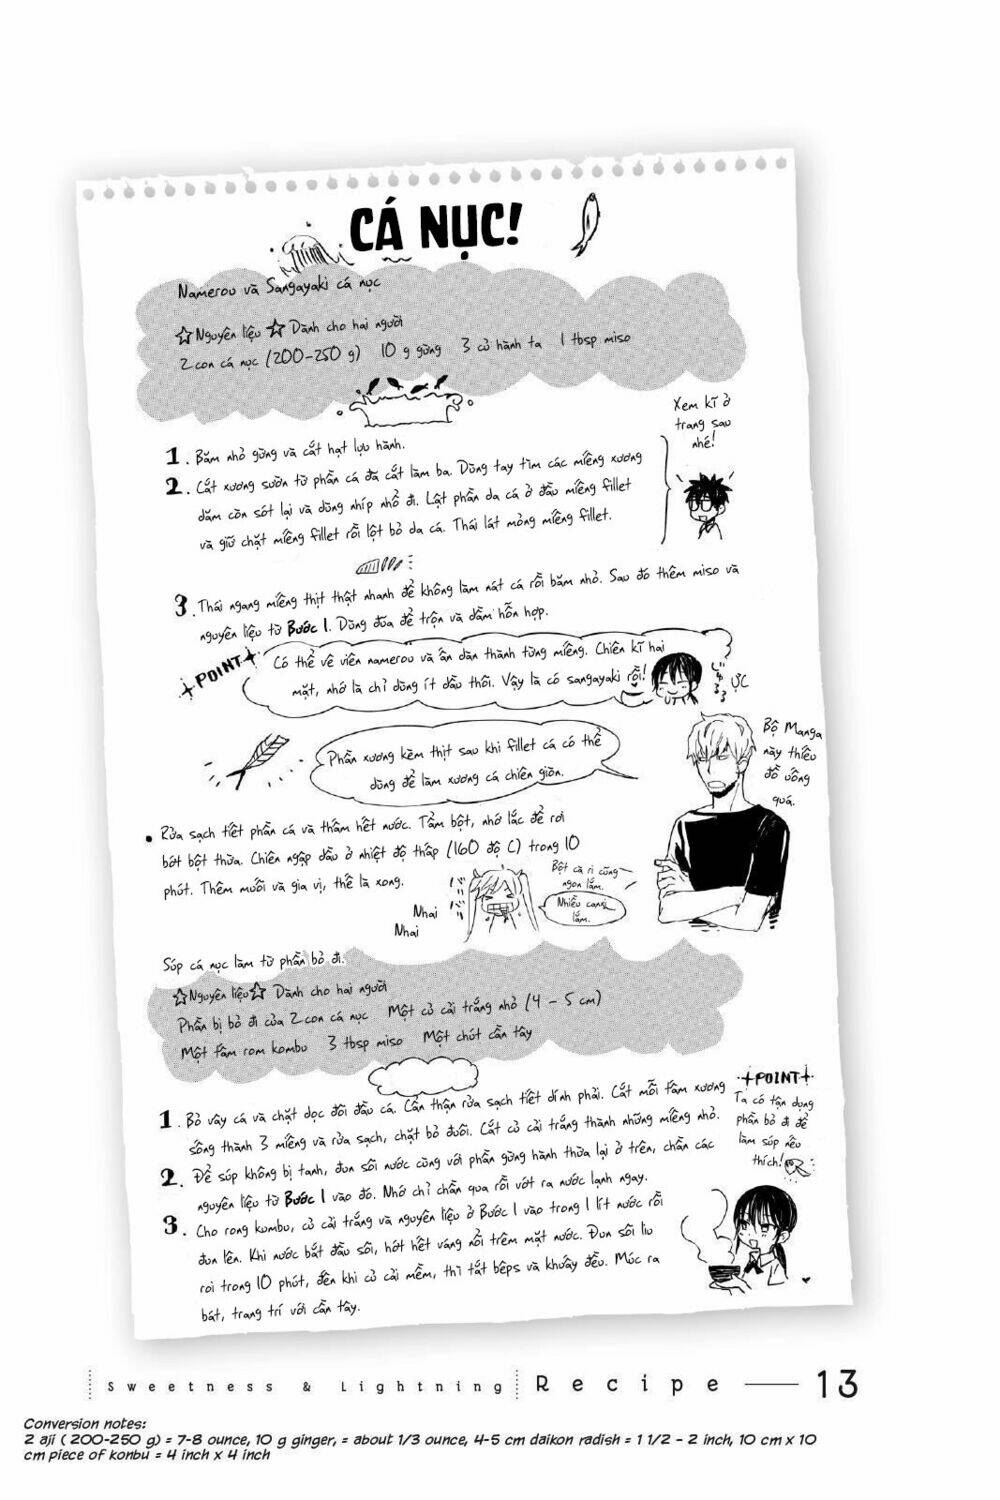 CÁ NỤC!
Namerou và Sangayaki cá nục
☆Nguyên liệu ☆ Dành cho hai người
2 con cá nục (200-250 g) 10 g gừng 3 củ hành ta 1 tbsp miso
Xem kĩ ở
trang sau
nhé!
1. Băm nhỏ gừng và cắt hạt lựu hành.
2. Cắt xương sườn từ phần cá đã cắt làm ba. Dùng tay tìm các miếng xương
dăm còn sót lại và dùng nhíp nhổ đi. Lật phần da cá ở đầu miếng fillet
và giữ chặt miếng fillet rồi lột bỏ da cá. Thái lát mỏng miếng fillet.
3. Thái ngang miếng thịt thật nhanh để không làm nát cá rồi băm nhỏ. Sau đó thêm miso và
nguyên liệu từ Bước 1. Dùng đũa để trộn và dầm hỗn hợp.
POINT
Có thể vê viên namerou và ấn dàn thành từng miếng. Chiên kĩ hai
mặt, nhớ là chỉ dùng ít dầu thôi. Vậy là có sangayaki rồi!
ỰC
Phần xương kèm thịt sau khi fillet cá có thể
dùng để làm xương cá chiên giòn.
Bộ Manga
này thiếu
đồ uống
quá.
• Rửa sạch tiết phần cá và thấm hết nước. Tẩm bột, nhớ lắc để rơi
bớt bột thừa. Chiên ngập dầu ở nhiệt độ thấp (160 độ C) trong 10
phút. Thêm muối và gia vị, thế là xong.
Bột cà ri cũng
ngon lắm.
Nhiều canxi
lắm.
Nhai
Nhai
Súp cá nục làm từ phần bỏ đi.
☆Nguyên liệu☆ Dành cho hai người
Phần bị bỏ đi của 2 con cá nục Một củ cải trắng nhỏ (4 - 5 cm)
Một tấm rom kombu 3 tbsp miso Một chút cần tây
1. Bỏ vây cá và chặt dọc đôi đầu cá. Cẩn thận rửa sạch tiết dính phải. Cắt mỗi tấm xương
sống thành 3 miếng và rửa sạch, chặt bỏ đuôi. Cắt củ cải trắng thành những miếng nhỏ.
2. Để súp không bị tanh, đun sôi nước cùng với phần gừng hành thừa lại ở trên, chần các
nguyên liệu từ Bước 1 vào đó. Nhớ chỉ chần qua rồi vớt ra nước lạnh ngay.
3. Cho rong kombu, củ cải trắng và nguyên liệu ở Bước 1 vào trong 1 lít nước rồi
đun lên. Khi nước bắt đầu sôi, hớt hết váng nổi trêm mặt nước. Đun sôi liu
riu trong 10 phút, đến khi củ cải mềm, thì tắt bếps và khuấy đều. Múc ra
bát, trang trí với cần tây.
POINT
Ta có tận dụng
phần bỏ đi để
làm súp nếu
thích!
Sweetness & Lightning Recipe 13
Conversion notes:
2 aji ( 200-250 g) = 7-8 ounce, 10 g ginger, = about 1/3 ounce, 4-5 cm daikon radish = 1 1/2 - 2 inch, 10 cm x 10
cm piece of konbu = 4 inch x 4 inch